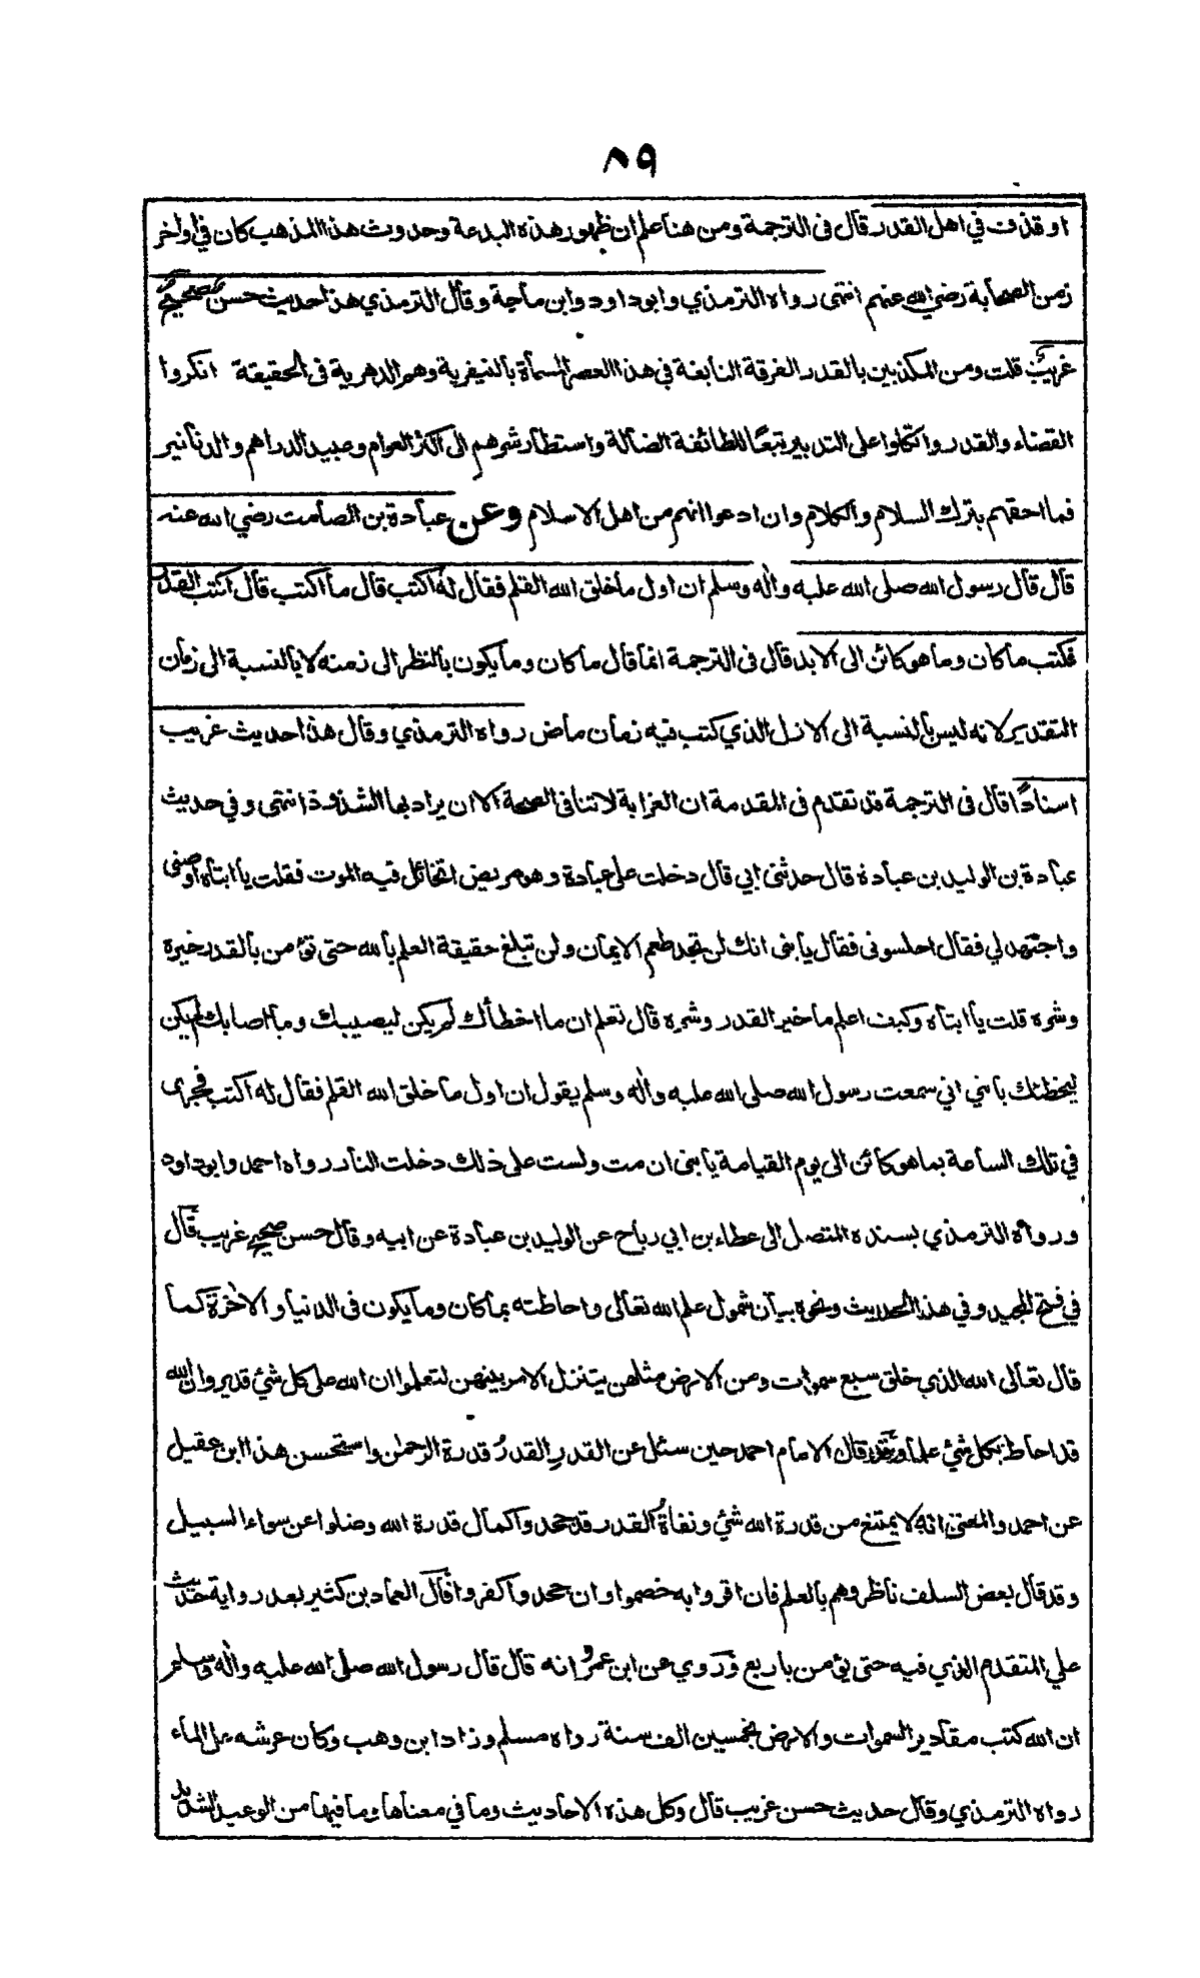 ٨٩
او قذف في اهل القدر قال فى الترجمة ومن هنا علم ان ظهور هذه البدعة وحدوث هذا المذهب كان في اواخر
زمن الصحابة رضي الله عنهم انتهى رواه الترمذي وابو داود وابن ماجة وقال الترمذي هذا حديث حسن صحيح
غريب قلت ومن المكذبين بالقدر الفرقة النابغة في هذا العصر المسماة بالنيفرية وهم الدهرية فى الحقيقة انكروا
القضاء والقدر واتكلوا على التدبير تبعًا للطائفة الضالة واستطار شرهم الى اكثر العوام وعبيد الدراهم والدنانير
فما احقهم بترك السلام والكلام وان ادعوا انهم من اهل الاسلام وعن عبادة بن الصامت رضي الله عنه
قال قال رسول الله صلى الله عليه واٰله وسلم ان اول ما خلق الله القلم فقال له اكتب قال ما اكتب قال اكتب القدر
فكتب ما كان وما هو كائن الى الابد قال فى الترجمة انما قال ما كان وما يكون بالنظر الى زمنه لا بالنسبة الى زمان
التقدير لانه ليس بالنسبة الى الازل الذي كتب فيه زمان ماض رواه الترمذي وقال هذا حديث غريب
اسنادًا قال فى الترجمة قد تقدم فى المقدمة ان الغرابة لا تنافى الصحة الا ان يراد بها الشذوذ انتهى وفي حديث
عبادة بن الوليد بن عبادة قال حدثنى ابي قال دخلت على عبادة وهو مريض اتخائل فيه الموت فقلت يا ابتاه اوصنى
واجتهد لي فقال اجلسونى فقال يا بنى انك لن تجد طعم الايمان ولن تبلغ حقيقة العلم بالله حتى تؤمن بالقدر خيره
وشره قلت يا ابتاه وكيف اعلم ما خير القدر وشره قال تعلم ان ما اخطأك لم يكن ليصيبك وما اصابك لم يكن
ليخطئك يا بني اني سمعت رسول الله صلى الله عليه واٰله وسلم يقول ان اول ما خلق الله القلم فقال له اكتب فجرى
في تلك الساعة بما هو كائن الى يوم القيامة يا بنى ان مت ولست على ذلك دخلت النار رواه احمد وابو داود
ورواه الترمذي بسنده المتصل الى عطاء بن ابي رباح عن الوليد بن عبادة عن ابيه وقال حسن صحيح غريب قال
في فتح المجيد وفي هذا الحديث ونحوه بيان شمول علم الله تعالى واحاطته بما كان وما يكون فى الدنيا والاٰخرة كما
قال تعالى الله الذي خلق سبع سموات ومن الارض مثلهن يتنزل الامر بينهن لتعلموا ان الله على كل شئ قدير وان الله
قد احاط بكل شئ علما وقد قال الامام احمد حين سئل عن القدر القدر قدرة الرحمٰن واستحسن هذا ابن عقيل
عن احمد والمعنى انه لا يمتنع من قدرة الله شئ ونفاة القدر قد جحدوا كمال قدرة الله وضلوا عن سواء السبيل
وقد قال بعض السلف ناظروهم بالعلم فان اقروا به خصموا وان جحدوا كفروا قال العماد بن كثير بعد رواية حديث
علي المتقدم الذي فيه حتى يؤمن باربع وروي عن ابن عمرو انه قال قال رسول الله صلى الله عليه واٰله وسلم
ان الله كتب مقادير السموات والارض بخمسين الف سنة رواه مسلم وزاد ابن وهب وكان عرشه على الماء
رواه الترمذي وقال حديث حسن غريب قال وكل هذه الاحاديث وما في معناها وما فيها من الوعيد الشديد